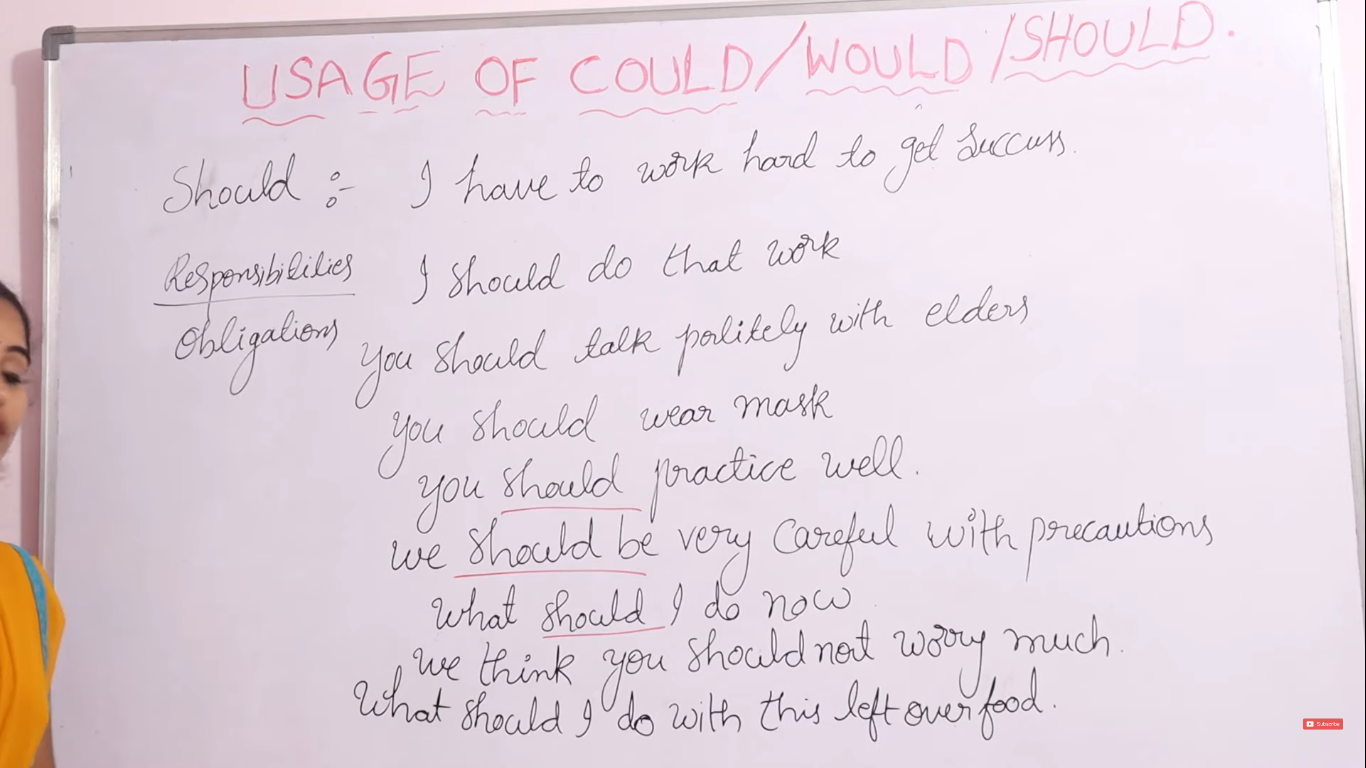 USAGE OF COULD/WOULD/SHOULD.
Should :- I have to work hard to get Success.
Responsibilities I should do that work
Obligations You should talk politely with elders
You should wear mask
You should practice well.
We should be very careful with precautions
What should I do now
We think you should not worry much.
What should I do with this left over food.
Subscribe